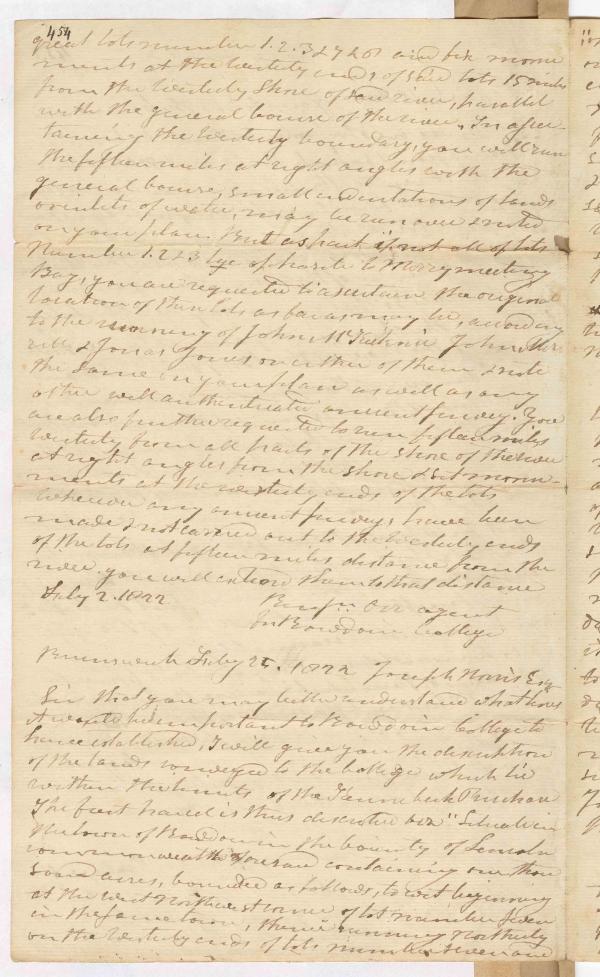 454
great lots number 1. 2. 3 & 7 & 8 and fix monu
ments at the westerly ends of said lots 15 miles
from the westerly Shore of said river, parallel
with the general course of the river. In ascer-
taining the westerly boundary, you will run
the fifteen miles at right angles with the
general course, small indentations of lands
or inlets of water, may be run over & noted
on your plan. But as part if not all of lots
Number 1. 2 & 3 lye opposite to Merrymeeting
Bay, you are requested to ascertain the original
location of these lots as far as may be, according
to the running of John McKechnie John
& Jonas Jones or either of them & note
the same on your plan as well as any
other well authenticated ancient survey. You
are also further requested to run fifteen miles
westerly from all parts of the shore of the river
at right angles from the shore & set monu-
ments at the westerly ends of the lots
wherever any ancient surveys have been
made & not carried out to the westerly ends
of the lots at fifteen miles distance from the
river. you will extend them to that distance
July 2. 1822
Benjn Orr agent
for Bowdoin College
Brunswick July 25. 1822 Joseph Norris Esq
Sir that you may better understand what lines
it would be important to Bowdoin College to
have established, I will give you the description
of the lands conveyed to the College which lie
within the limits of the Kennebeck Purchase
The first tract is thus described viz "Situate in
the town of Bowdoin in the County of Lincoln
commonwealth aforesaid containing one thou
sand acres, bounded as follows, to wit beginning
at the west Northwest corner of lot number seven
in the same town, thence running northerly
on the westerly ends of lots number seven and